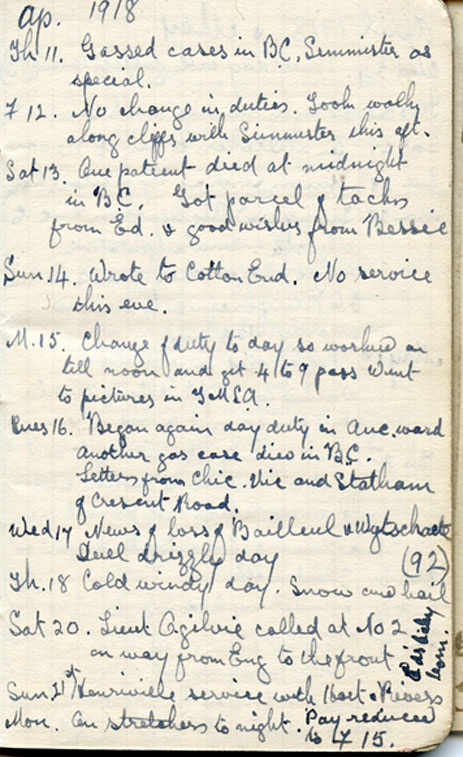 Ap. 1918
Th 11. Gassed cases in BC, Simmister as
special.
F 12. No change in duties. Took walk
along cliffs with Simmister this aft.
Sat 13. One patient died at midnight
in BC. Got parcel of tacks
from Ed. & good wishes from Bessie
Sun 14. Wrote to Cotton End. No service
this eve.
M. 15. Change of duty to day so worked on
till noon and get 4 to 9 pass Went
to pictures in YMCA.
Tues 16. Began again day duty in ward
another gas case died in BC.
Letters from Chic. Vic and Statham
of Crescent Road.
Wed 17 News of loss of Bailleul & Wytschaete
drizzly day (92)
Th. 18 Cold windy day. Snow and hail
Sat 20. Lieut Ogilvie called at No 2
on way from Eng to the front
born.
Sun 21st Henriville service with & Rivers
Mon. On stretchers to night. Pay reduced
to £ 15.